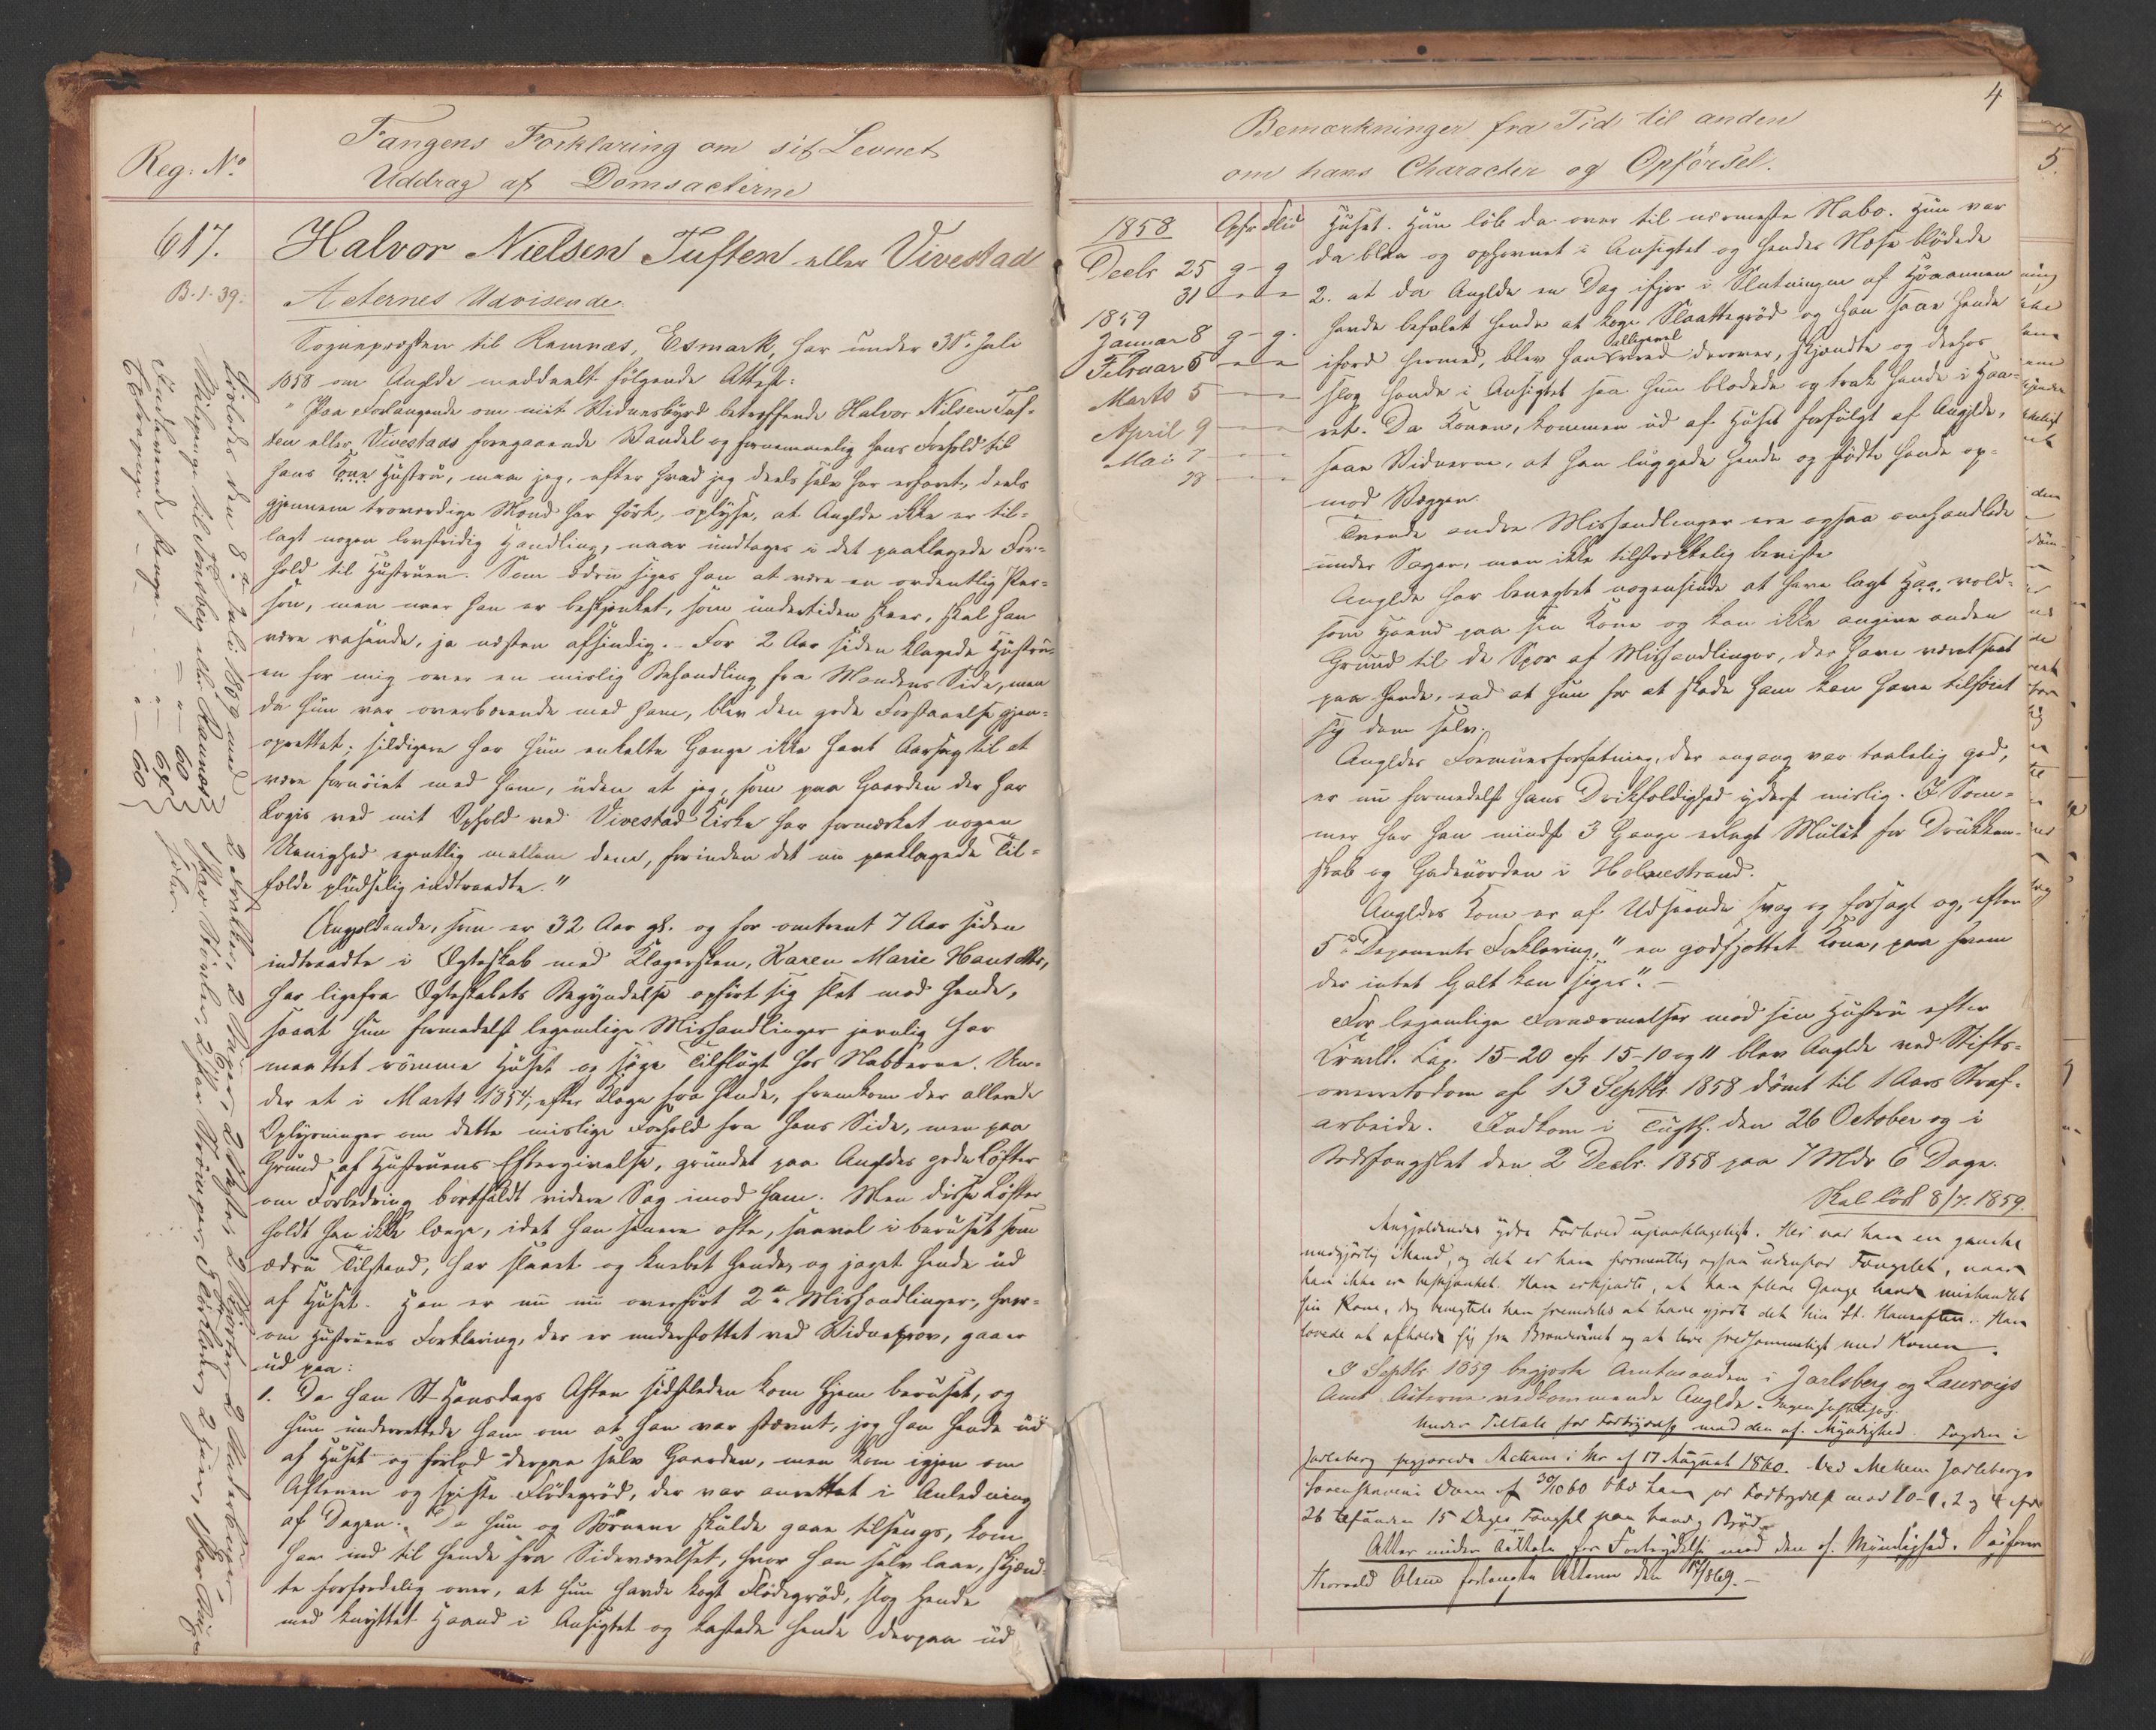 Reg. No
Fangens Forklaring om sit Levnet
Uddrag af Domsacterne
617.
B.1.39.
Halvor Nielsen Tuften eller Vivestad
Acternes Udvisende.
Sognepræsten til Ramnæs, Esmark, har under 31te Juli
1858 om Anglde meddeelt følgende Attest:
"Paa Forlangende om mit Vidnesbyrd betræffende Halvor Nilsen Tuf-
ten eller Vivestads foregaaende Vandel og fornemmelig hans Forhold til
hans Kone Hustru, maa jeg, efter hvad jeg deels selv har erfaret, deels
gjennem troværdige Mænd har hørt, oplyse, at Anglde ikke er til-
lagt nogen lovstridig Handling, naar undtages i det paaklagede For-
hold til Hustruen. Som ædru siges han at være en ordentlig Per-
son, men naar han er beskjenket, som undertiden skeer, skal han
være rasende, ja næsten afsindig. For 2 Aar siden klagede Hustru-
en for mig over en mislig Behandling fra Mandens Side, men
da hun var overbærende med ham, blev den gode Forstaaelse gjen-
oprettet; sildigere har hun enkelte Gange ikke havt Aarsag til at
være fornøiet med ham, uden at jeg, som paa Gaarden der har
Logis ved mit Ophold ved Vivestad Kirke har formærket nogen
Uenighed egentlig mellem dem, forinden det nu paaklagede Til-
fælde pludselig indtraadte."
Angjeldende, som er 32 Aar gl. og for omtrent 7 Aar siden
indtraadte i Ægteskab med Klagersken, Karen Marie Hansdtr,
har ligefra Ægteskabets Begyndelse opført sig slet mod hende,
saaat hun formedelst legemlige Mishandlinger jevnlig har
maattet rømme Huset og søge Tilflugt hos Naboerne. Un-
der et i Marts 1854, efter Klage fra hende, fremkom der allerede
Oplysninger om dette mislige Forhold fra hans Side, men paa
Grund af Hustruens Eftergivelse, grundet paa Angldes gode Løfter
om Forbedring bortfaldt videre Sag imod ham. Men disse Løfter
holdt han ikke længe, idet han senere ofte, saavel i beruset som
ædru Tilstand, har slaaet og knebet hende, og jaget hende ud
af Huset. Han er nu nu overført 2de Mishandlinger, hvor-
om Hustruens Forklaring, der er understøttet ved Vidneprov, gaaer
ud paa:
1. Da han St Hansdags Aften sidstleden kom hjem beruset, og
hun underrettede ham om at han var stævnt, jog han hende ud
af Huset og forlod derpaa selv Gaarden, men kom igjen om
Aftenen og spiste Flødegrød, der var anrettet i Anledning
af Dagen. Da hun og Børnene skulde gaae tilsengs, kom
han ind til hende fra Sideværelset, hvor han selv laae, skjænd-
te forfærdelig over, at hun havde kogt Flødegrød, slog hende
med knyttet Haand i Ansigtet og kastede hende derpaa ud
Løslodes den 8de Juli 1859 med
Reisepenge til Tønsberg eller Ramnæs
Indtjente Penge - - - 68
60
60
2 Buxer, 2 Veste, 2 Skjorter, 2 Underbuxer,
1 Par Støvler, 2 Par Strømper, 1 Par
4
Bemærkninger fra Tid til anden
om hans Character og Opførsel.
1858 Opfør Flid
Decbr 25 g - g
31 - - -
1859
Januar 8 g - g.
Februar 5 - - -
Marts 5 - - -
April 9 - - -
Mai 7 - - -
28 - - -
Huset. Hun løb da over til nærmeste Nabo. Hun var
da blaa og ophovnet i Ansigtet og hendes Næse blødede
2. at da Anglde en Dag ifjor i Slutningen af Høaannen
havde befalet hende at koge Slaattegrød og han saae hende
ifærd hermed, blev han alligevel vred derover, skjændte og derhos
slog hende i Ansigtet saa hun blødede og trak hende i Haa-
ret. Da Konen, kommen ud af Huset forfulgt af Anglde,
saae Vidnerne, at han luggede hende og stødte hende op-
mod Væggen.
Tvende andre Mishandlinger ere ogsaa omhandlede
under Sagen, men ikke tilstrækkelig beviste.
Anglde har benegtet nogensinde at have lagt Haa vold-
som Haand paa sin Kone og kan ikke angive anden
Grund til de Spor af Mishandlinger, der have været seet
paa hende, end at hun for at skade ham kan have tilføiet
sig dem selv.
Angldes Formuesforfatning, der engang var taalelig god,
er nu formedelst hans Drikfældighed yderst mislig. I Som-
mer har han mindst 3 Gange erlagt Mulct for Drukken-
skab og Gadeuorden i Holmestrand.
Angldes Kone er af Udseende svag og forsagt og, efter
5te Deponents Forklaring, "en godhjertet Kone, paa hvem
der intet Galt kan siges". -
For legemlige Fornærmelser mod sin Hustru efter
Crmll. Cap. 15-20 cfr 15-10 og 11 blev Anglde ved Stifts-
overretsdom af 13 Septbr 1858 dømt til 1 Aars Straf-
arbeide. Indkom i Tugth. den 26 October og i
Bodsfængslet den 2 Decbr. 1858 paa 7 Mdr 6 Dage.
Skal løs 8/7. 1859.
Angjældendes ydre Forhold upaaklageligt. Her var han en ganske
medgjørlig Mand, og det er han formentlig ogsaa udenfor Fængslet, naar
han ikke er beskjænket. Han erkjendte, at han flere Gange havde mishandlet
sin Kone, dog benegtede han fremdeles at have gjort det hin St. Hansaften. Han
lovede at afholde sig fra Brændeviinet og at leve fredsommeligt med Konen.
I Septbr 1859 begjærte Amtmanden i Jarlsberg og Laurvigs
Amt Acterne vedkommende Anglde.
Under Tiltale for Fortrydelse mod den off. Myndighed. Fogden i
Jarlsberg begjærede Acterne i Br af 17 August 1860. Ved Mellem Jarlsbergs
Sorenskriveries Dom af 30/10 60 blev han for Fortrydelse mod 10-1, 2 og 4 cfr
26 15 Dages Fængsel paa Vand og Brød.
Atter under Tiltale for Fortrydelse mod den off. Myndighed.
Thorvald Olsen forlangte Acterne den
5.